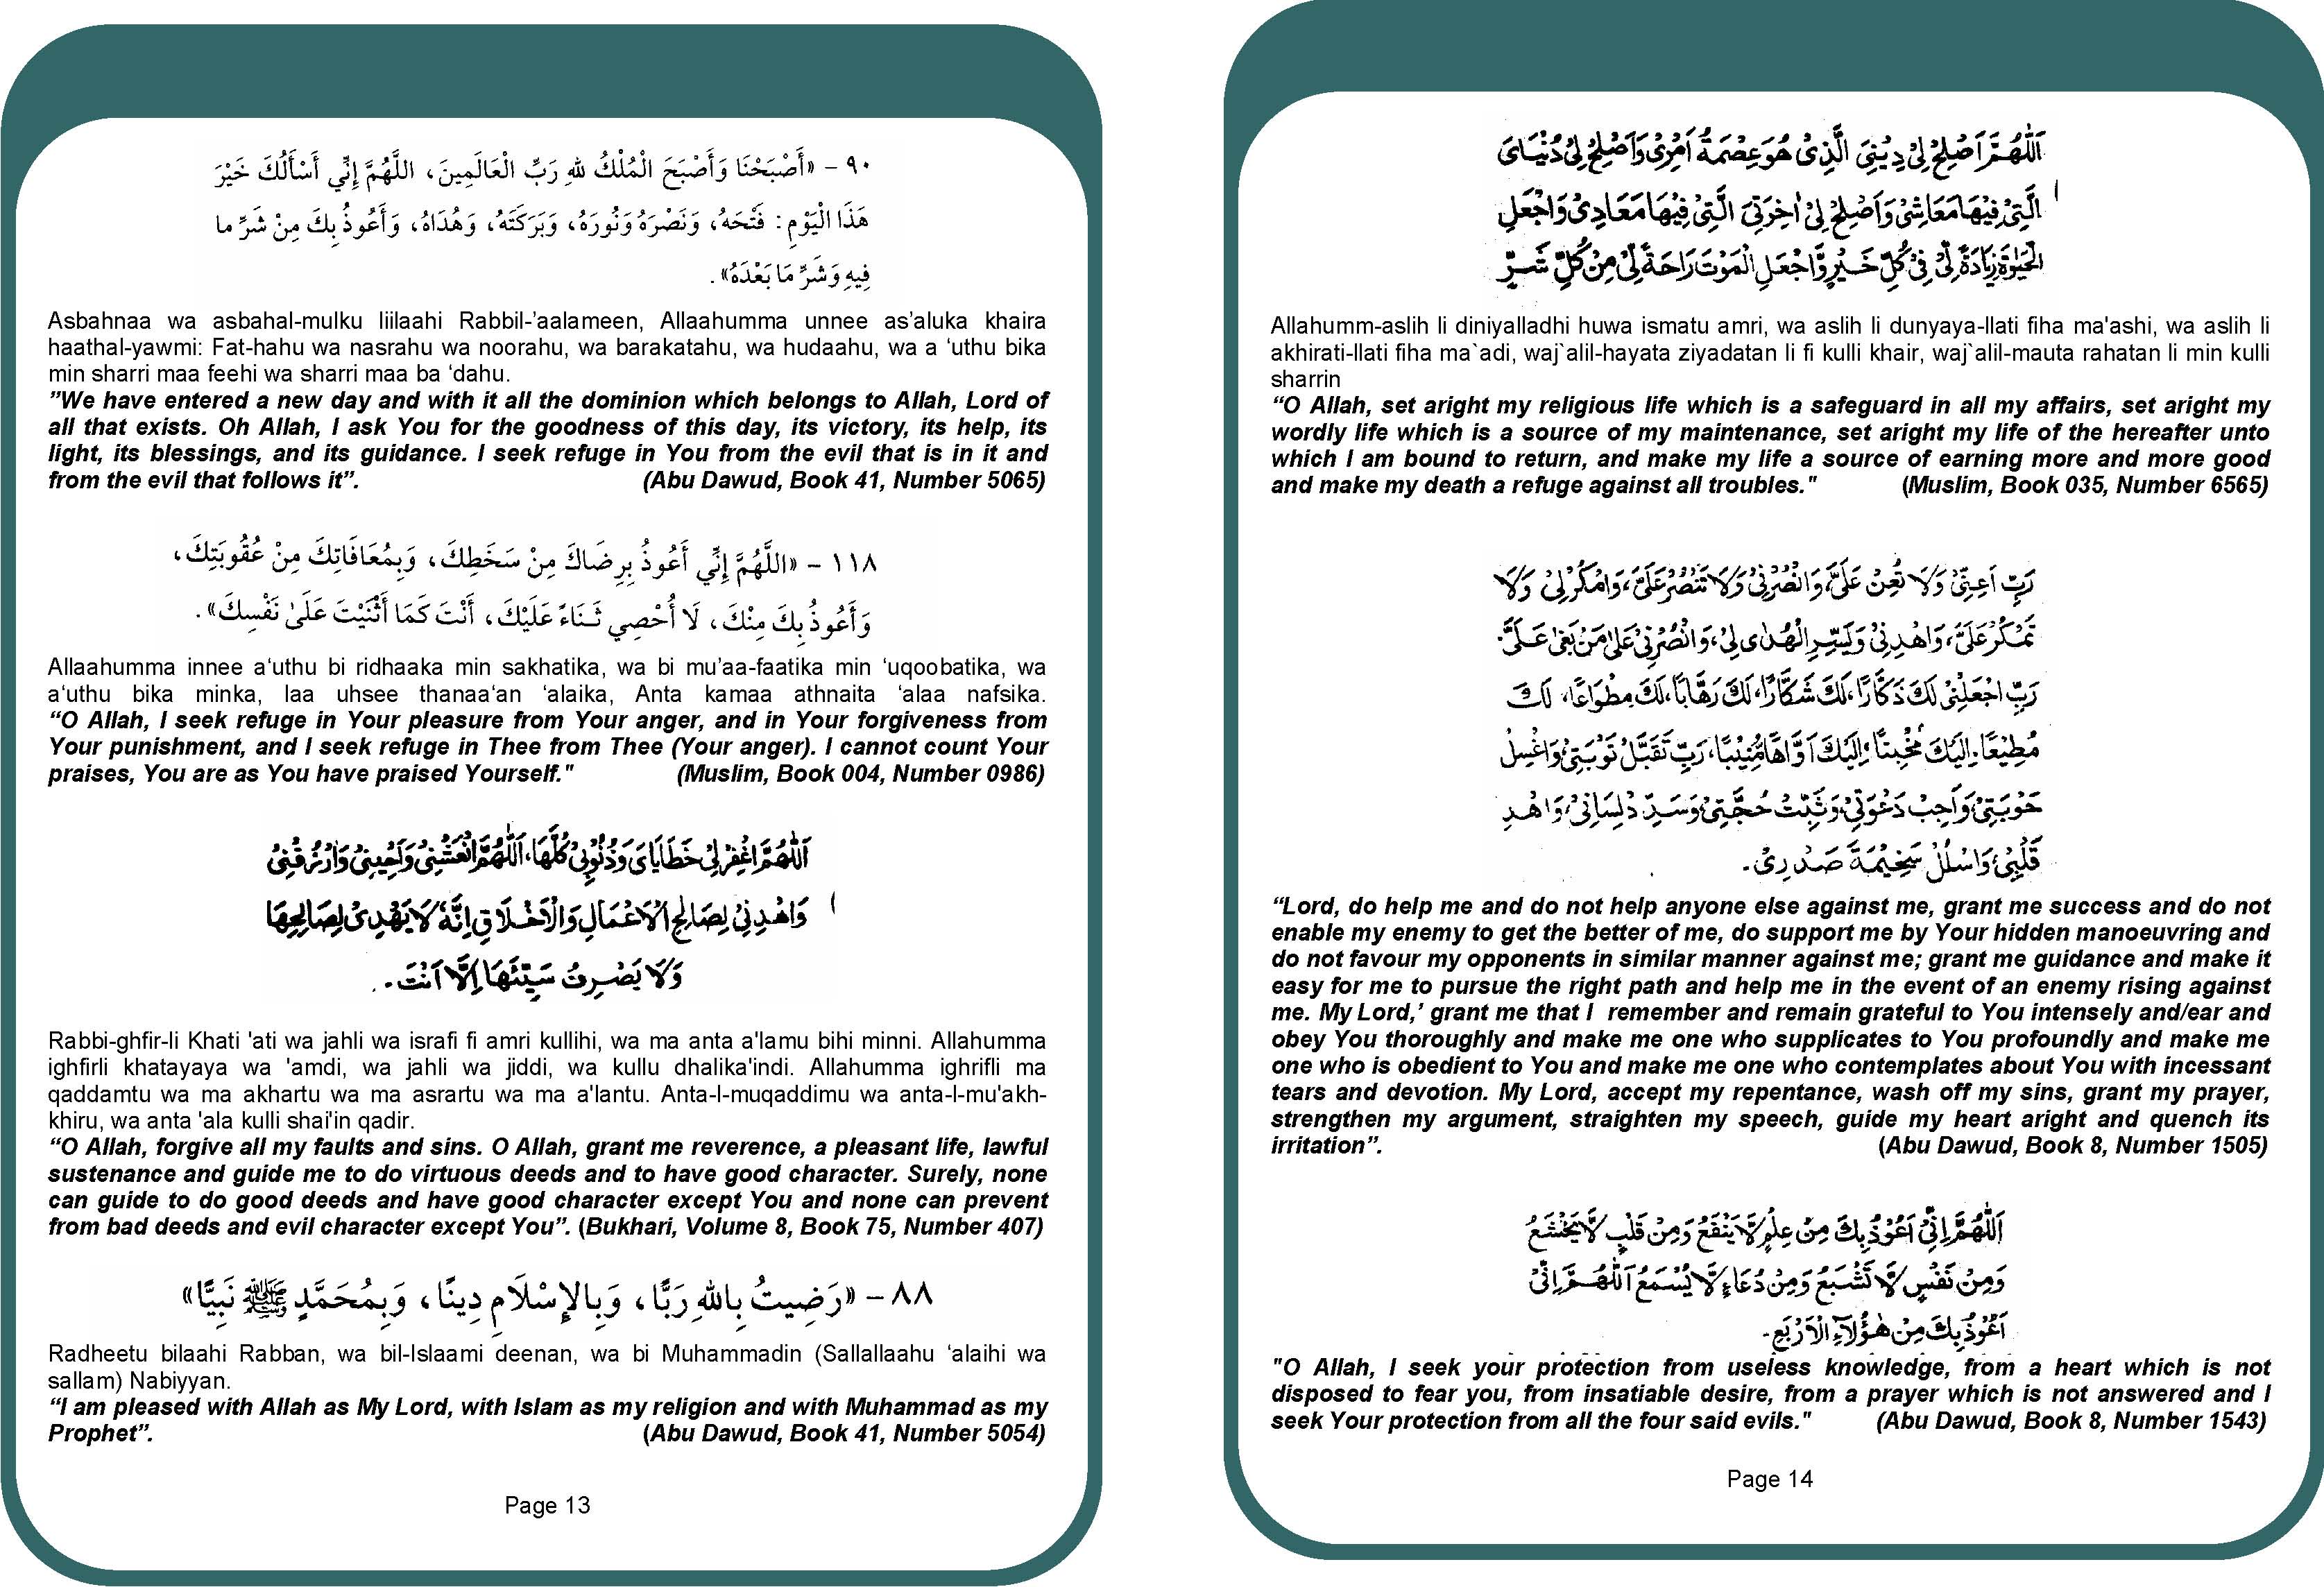 ٩٠ - «أَصْبَحْنَا وَأَصْبَحَ الْمُلْكُ للهِ رَبِّ الْعَالَمِينَ، اللَّهُمَّ إِنِّي أَسْأَلُكَ خَيْرَ
هَذَا الْيَوْمِ: فَتْحَهُ، وَنَصْرَهُ وَنُورَهُ، وَبَرَكَتَهُ، وَهُدَاهُ، وَأَعُوذُ بِكَ مِنْ شَرِّ ما
فِيهِ وَشَرِّ مَا بَعْدَهُ».
Asbahnaa wa asbahal-mulku liilaahi Rabbil-’aalameen, Allaahumma unnee as’aluka khaira
haathal-yawmi: Fat-hahu wa nasrahu wa noorahu, wa barakatahu, wa hudaahu, wa a ‘uthu bika
min sharri maa feehi wa sharri maa ba ‘dahu.
”We have entered a new day and with it all the dominion which belongs to Allah, Lord of
all that exists. Oh Allah, I ask You for the goodness of this day, its victory, its help, its
light, its blessings, and its guidance. I seek refuge in You from the evil that is in it and
from the evil that follows it”. (Abu Dawud, Book 41, Number 5065)
١١٨ - «اللَّهُمَّ إِنِّي أَعُوذُ بِرِضَاكَ مِنْ سَخَطِكَ، وَبِمُعَافَاتِكَ مِنْ عُقُوبَتِكَ،
وَأَعُوذُ بِكَ مِنْكَ، لَا أُحْصِي ثَنَاءً عَلَيْكَ، أَنْتَ كَمَا أَثْنَيْتَ عَلَىٰ نَفْسِكَ».
Allaahumma innee a‘uthu bi ridhaaka min sakhatika, wa bi mu’aa-faatika min ‘uqoobatika, wa
a‘uthu bika minka, laa uhsee thanaa‘an ‘alaika, Anta kamaa athnaita ‘alaa nafsika.
“O Allah, I seek refuge in Your pleasure from Your anger, and in Your forgiveness from
Your punishment, and I seek refuge in Thee from Thee (Your anger). I cannot count Your
praises, You are as You have praised Yourself." (Muslim, Book 004, Number 0986)
اَللّٰهُمَّ اغْفِرْ لِىْ خَطَايَاىَ وَذُنُوْبِىْ كُلَّهَا، اَللّٰهُمَّ انْعَشْنِىْ وَاَحْيِنِىْ وَارْزُقْنِىْ
وَاهْدِنِىْ لِصَالِحِ الْاَعْمَالِ وَالْاَخْلَاقِ اِنَّهٗ لَا يَهْدِىْ لِصَالِحِهَا
وَلَا يَصْرِفُ سَيِّئَهَا اِلَّا اَنْتَ.
Rabbi-ghfir-li Khati 'ati wa jahli wa israfi fi amri kullihi, wa ma anta a'lamu bihi minni. Allahumma
ighfirli khatayaya wa 'amdi, wa jahli wa jiddi, wa kullu dhalika'indi. Allahumma ighrifli ma
qaddamtu wa ma akhartu wa ma asrartu wa ma a'lantu. Anta-l-muqaddimu wa anta-l-mu'akh-
khiru, wa anta 'ala kulli shai'in qadir.
“O Allah, forgive all my faults and sins. O Allah, grant me reverence, a pleasant life, lawful
sustenance and guide me to do virtuous deeds and to have good character. Surely, none
can guide to do good deeds and have good character except You and none can prevent
from bad deeds and evil character except You”. (Bukhari, Volume 8, Book 75, Number 407)
٨٨ - «رَضِيتُ بِاللهِ رَبًّا، وَبِالإِسْلَامِ دِينًا، وَبِمُحَمَّدٍ ﷺ نَبِيًّا»
Radheetu bilaahi Rabban, wa bil-Islaami deenan, wa bi Muhammadin (Sallallaahu ‘alaihi wa
sallam) Nabiyyan.
“I am pleased with Allah as My Lord, with Islam as my religion and with Muhammad as my
Prophet”. (Abu Dawud, Book 41, Number 5054)
Page 13
اَللّٰهُمَّ اَصْلِحْ لِىْ دِيْنِىَ الَّذِىْ هُوَ عِصْمَةُ اَمْرِىْ وَاَصْلِحْ لِىْ دُنْيَاىَ
الَّتِىْ فِيْهَا مَعَاشِىْ وَاَصْلِحْ لِىْ اٰخِرَتِىَ الَّتِىْ فِيْهَا مَعَادِىْ وَاجْعَلِ
الْحَيٰوةَ زِيَادَةً لِّىْ فِىْ كُلِّ خَيْرٍ وَّاجْعَلِ الْمَوْتَ رَاحَةً لِّىْ مِنْ كُلِّ شَرٍّ
Allahumm-aslih li diniyalladhi huwa ismatu amri, wa aslih li dunyaya-llati fiha ma'ashi, wa aslih li
akhirati-llati fiha ma`adi, waj`alil-hayata ziyadatan li fi kulli khair, waj`alil-mauta rahatan li min kulli
sharrin
“O Allah, set aright my religious life which is a safeguard in all my affairs, set aright my
wordly life which is a source of my maintenance, set aright my life of the hereafter unto
which I am bound to return, and make my life a source of earning more and more good
and make my death a refuge against all troubles." (Muslim, Book 035, Number 6565)
رَبِّ اَعِنِّىْ وَلَا تُعِنْ عَلَىَّ، وَانْصُرْنِىْ وَلَا تَنْصُرْ عَلَىَّ، وَامْكُرْ لِىْ وَلَا
تَمْكُرْ عَلَىَّ، وَاهْدِنِىْ وَيَسِّرِ الْهُدٰى لِىْ، وَانْصُرْنِىْ عَلٰى مَنْ بَغٰى عَلَىَّ.
رَبِّ اجْعَلْنِىْ لَكَ ذَكَّارًا، لَكَ شَكَّارًا، لَكَ رَهَّابًا، لَكَ مِطْوَاعًا، لَكَ
مُطِيْعًا. اِلَيْكَ مُخْبِتًا، اِلَيْكَ اَوَّاهًا مُّنِيْبًا، رَبِّ تَقَبَّلْ تَوْبَتِىْ، وَاغْسِلْ
حَوْبَتِىْ وَاَجِبْ دَعْوَتِىْ، وَثَبِّتْ حُجَّتِىْ وَسَدِّدْ لِسَانِىْ، وَاهْدِ
قَلْبِىْ، وَاسْلُلْ سَخِيْمَةَ صَدْرِىْ.
“Lord, do help me and do not help anyone else against me, grant me success and do not
enable my enemy to get the better of me, do support me by Your hidden manoeuvring and
do not favour my opponents in similar manner against me; grant me guidance and make it
easy for me to pursue the right path and help me in the event of an enemy rising against
me. My Lord,’ grant me that I remember and remain grateful to You intensely and/ear and
obey You thoroughly and make me one who supplicates to You profoundly and make me
one who is obedient to You and make me one who contemplates about You with incessant
tears and devotion. My Lord, accept my repentance, wash off my sins, grant my prayer,
strengthen my argument, straighten my speech, guide my heart aright and quench its
irritation”. (Abu Dawud, Book 8, Number 1505)
اَللّٰهُمَّ اِنِّىْ اَعُوْذُ بِكَ مِنْ عِلْمٍ لَّا يَنْفَعُ وَمِنْ قَلْبٍ لَّا يَخْشَعُ
وَمِنْ نَفْسٍ لَّا تَشْبَعُ وَمِنْ دُعَاءٍ لَّا يُسْمَعُ اَللّٰهُمَّ اِنِّىْ
اَعُوْذُ بِكَ مِنْ هٰؤُلَآءِ الْاَرْبَعِ.
"O Allah, I seek your protection from useless knowledge, from a heart which is not
disposed to fear you, from insatiable desire, from a prayer which is not answered and I
seek Your protection from all the four said evils." (Abu Dawud, Book 8, Number 1543)
Page 14